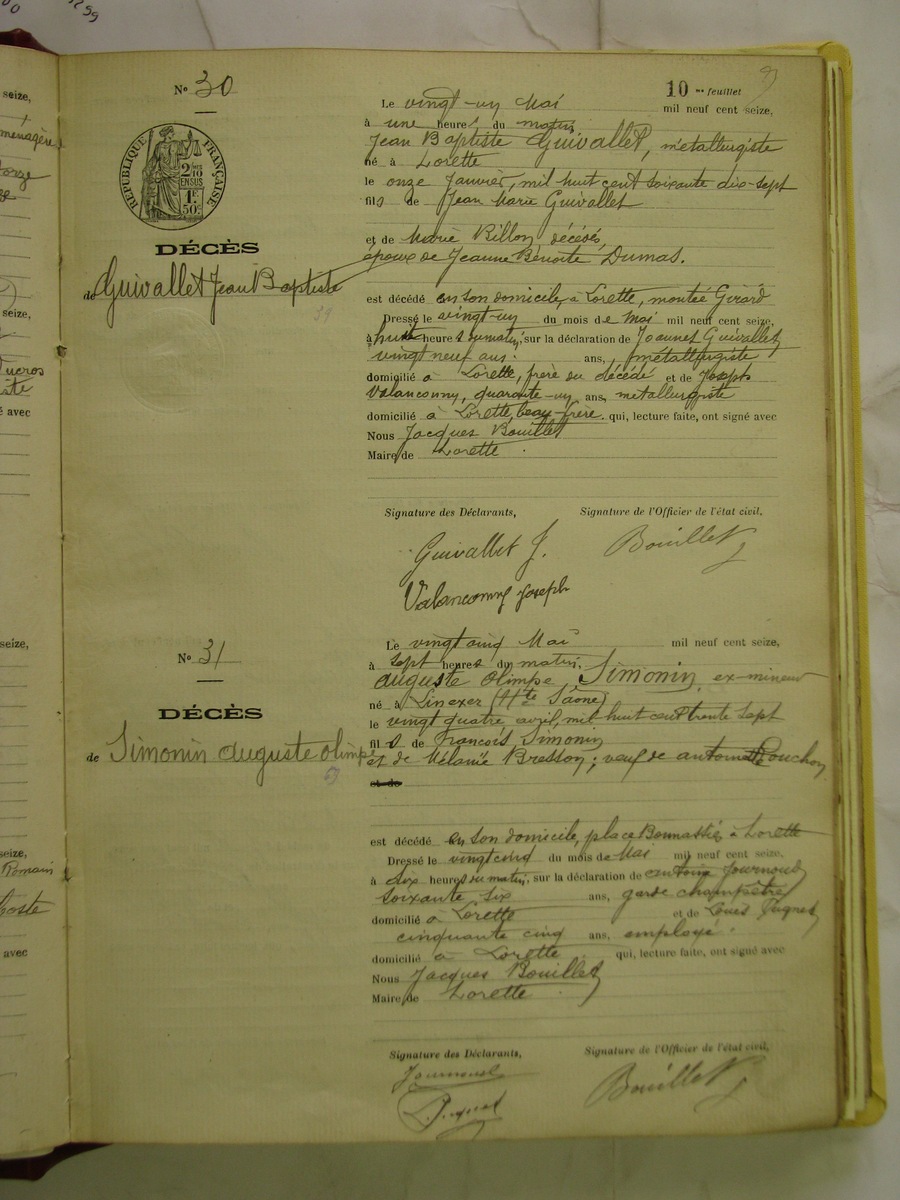 seize,
menagère
N° 30
10 me feuillet
Le vingt-un Mai mil neuf cent seize,
à une heures du matin,
Jean Baptiste Guivallet, métallurgiste
né à Lorette
le onze Janvier, mil huit cent soixante dix-sept
fils de Jean Marie Guivallet
et de Marie Billon, décédés,
époux de Jeanne Bénoite Dumas.
RÉPUBLIQUE FRANÇAISE
2/10 EN SUS
1F. 50c.
DÉCÈS
de Guivallet Jean Baptiste
est décédé en son domicile, à Lorette, montée Girard
Dressé le vingt-un du mois de Mai mil neuf cent seize,
à huit heures du matin, sur la déclaration de Joannet Guivallet
vingt neuf ans. ans, métallurgiste
domicilié à Lorette, frère du décédé et de Joseph
Valanconny, quarante-un ans, métallurgiste
domicilié à Lorette, beau-frère. qui, lecture faite, ont signé avec
Nous Jacques Bouillet
Maire de Lorette.
Signature des Déclarants, Signature de l'Officier de l'état civil,
Guivallet J. Bouillet
Valanconny Joseph
seize,
avec
N° 31
Le vingt cinq Mai mil neuf cent seize,
à sept heures du matin,
auguste Olimpe Simonin, ex-mineur
né à Linexer (Hte Saône)
le vingt quatre avril, mil huit cent trente sept
fils de François Simonin
et de Mélanie Bresson; veuf de antoinette Pouchon
et de
DÉCÈS
de Simonin auguste Olimpe
est décédé en son domicile, place Bonnassié à Lorette
Dressé le vingt cinq du mois de Mai mil neuf cent seize,
à dix heures du matin, sur la déclaration de antoine Journoud
soixante six ans, garde champêtre
domicilié à Lorette et de Louis Pugnet
cinquante cinq ans, employé.
domicilié à Lorette qui, lecture faite, ont signé avec
Nous Jacques Bouillet
Maire de Lorette.
Signature des Déclarants, Signature de l'Officier de l'état civil,
Journoud Bouillet
L. Pugnet
seize,
Romain
avec